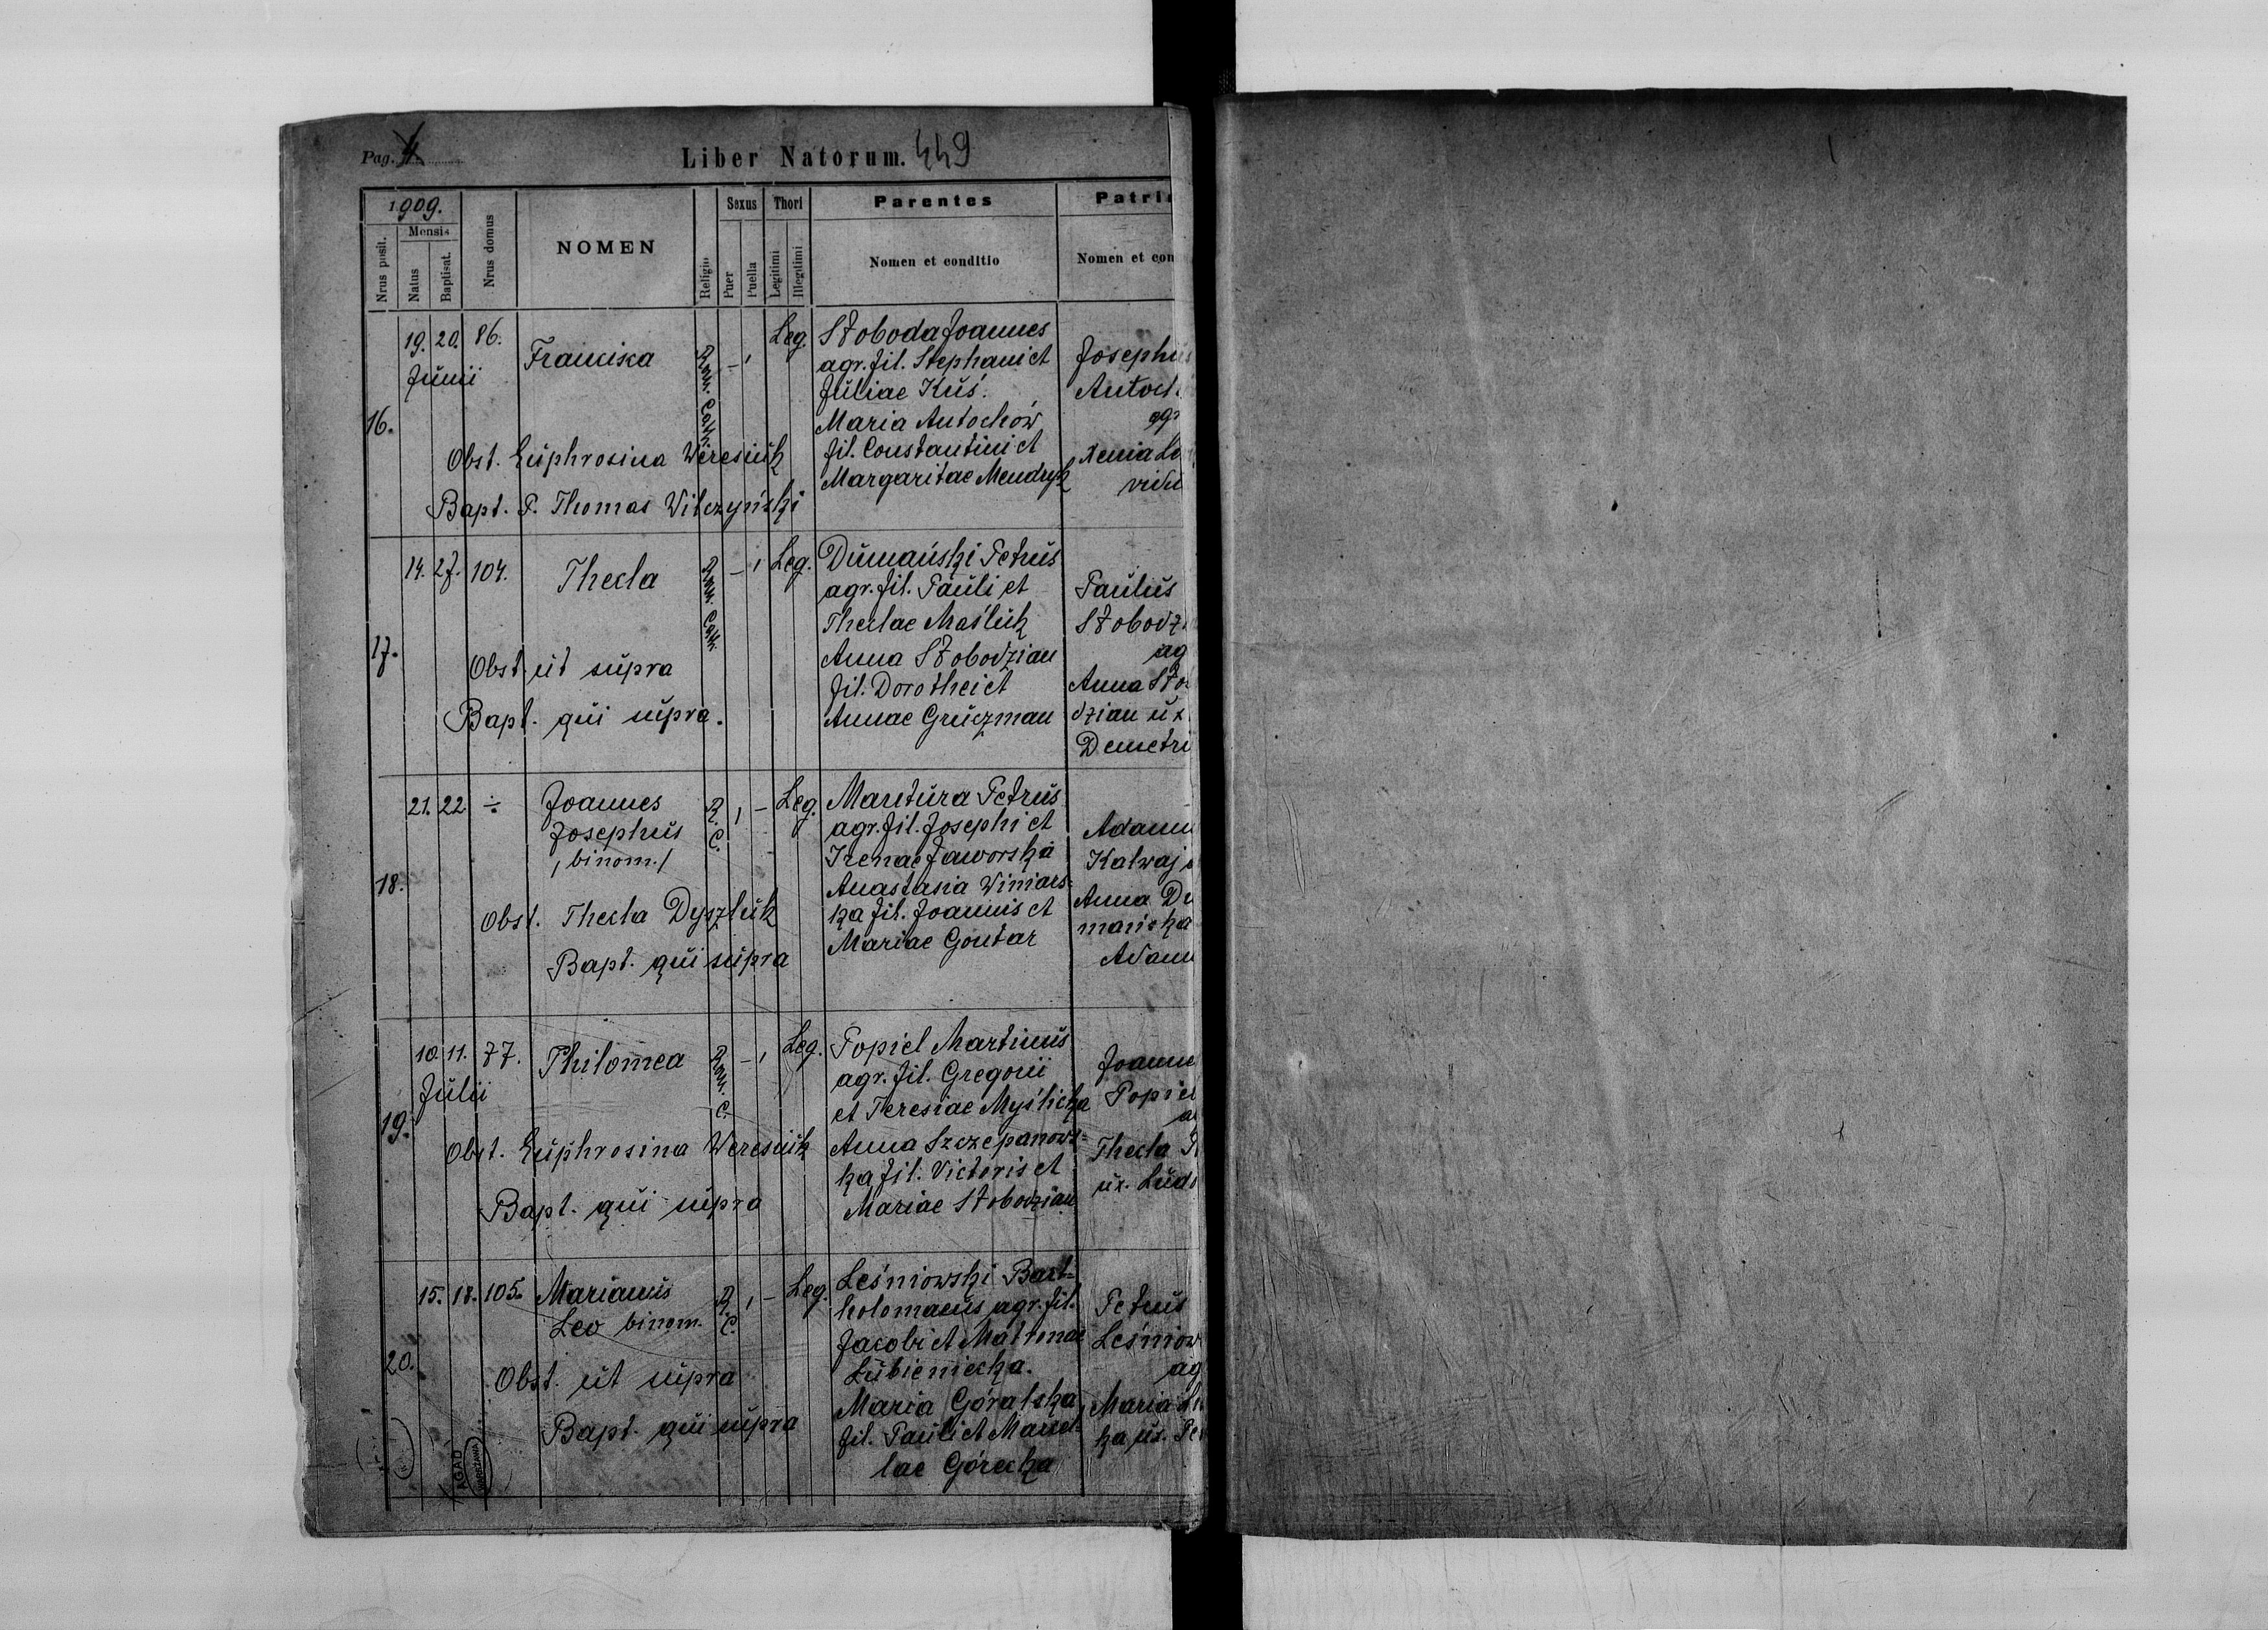 Pag. 4
Liber Natorum. 449
1909.
Nrus posit.
Mensis
Natus
Baptisat.
Nrus domus
NOMEN
Religio
Sexus
Puer
Puella
Thori
Legitimi
Illegitimi
Parentes
Nomen et conditio
Patri
Nomen et con
16.
19. 20. 86.
Junii
Franciska
Rom. Cath.
– 1
Leg.
Słoboda Joannes
agr. fil. Stephani et
Juliae Kuś.
Maria Antochów
fil. Constantini et
Margaritae Mendryk
Josephus
Antoch
agr
Xenia
vidu
Obst. Euphrosina Weresiuk
Bapt. P. Thomas Wilczyński
17.
14. 27. 104.
Thecla
Rom. Cath.
– 1
Leg.
Dumański Petrus
agr. fil. Pauli et
Theclae Maśluk
Anna Słobodzian
fil. Dorothei et
Annae Gruczman
Paulus
Słobodz
ag
Anna Sło
dzian ux
Demetri
Obst. ut supra
Bapt. qui supra.
18.
21. 22. ÷
Joannes
Josephus
/binom./
R. C.
1 –
Leg.
Mantura Petrus
agr. fil. Josephi et
Irenae Jaworska
Anastasia Winiars=
ka fil. Joannis et
Mariae Gontar
Adamu
Kalwaj
Anna Du
mańska
Adam
Obst. Thecla Dyszluk
Bapt. qui supra
19.
10. 11. 77.
Julii
Philomea
Rom. C.
– 1
Leg.
Popiel Martinus
agr. fil. Gregorii
et Teresiae Myślicka
Anna Szczepanows=
ka fil. Victoris et
Mariae Słobodzian
Joanne
Popiel
a
Thecla
ux. Ludo
Obst. Euphrosina Weresiuk
Bapt. qui supra
20.
15. 18. 105.
Marianus
Leo binom.
R. C.
1 –
Leg.
Leśniowski Bart=
holomaeus agr. fil.
Jacobi et Matronae
Lubieniecka.
Maria Góralska
fil. Pauli et Marcel=
lae Górecka
Petrus
Leśniow
ag
Maria
ka ux. Pe
Obst. ut supra
Bapt. qui supra
AGAD
WARSZAWA